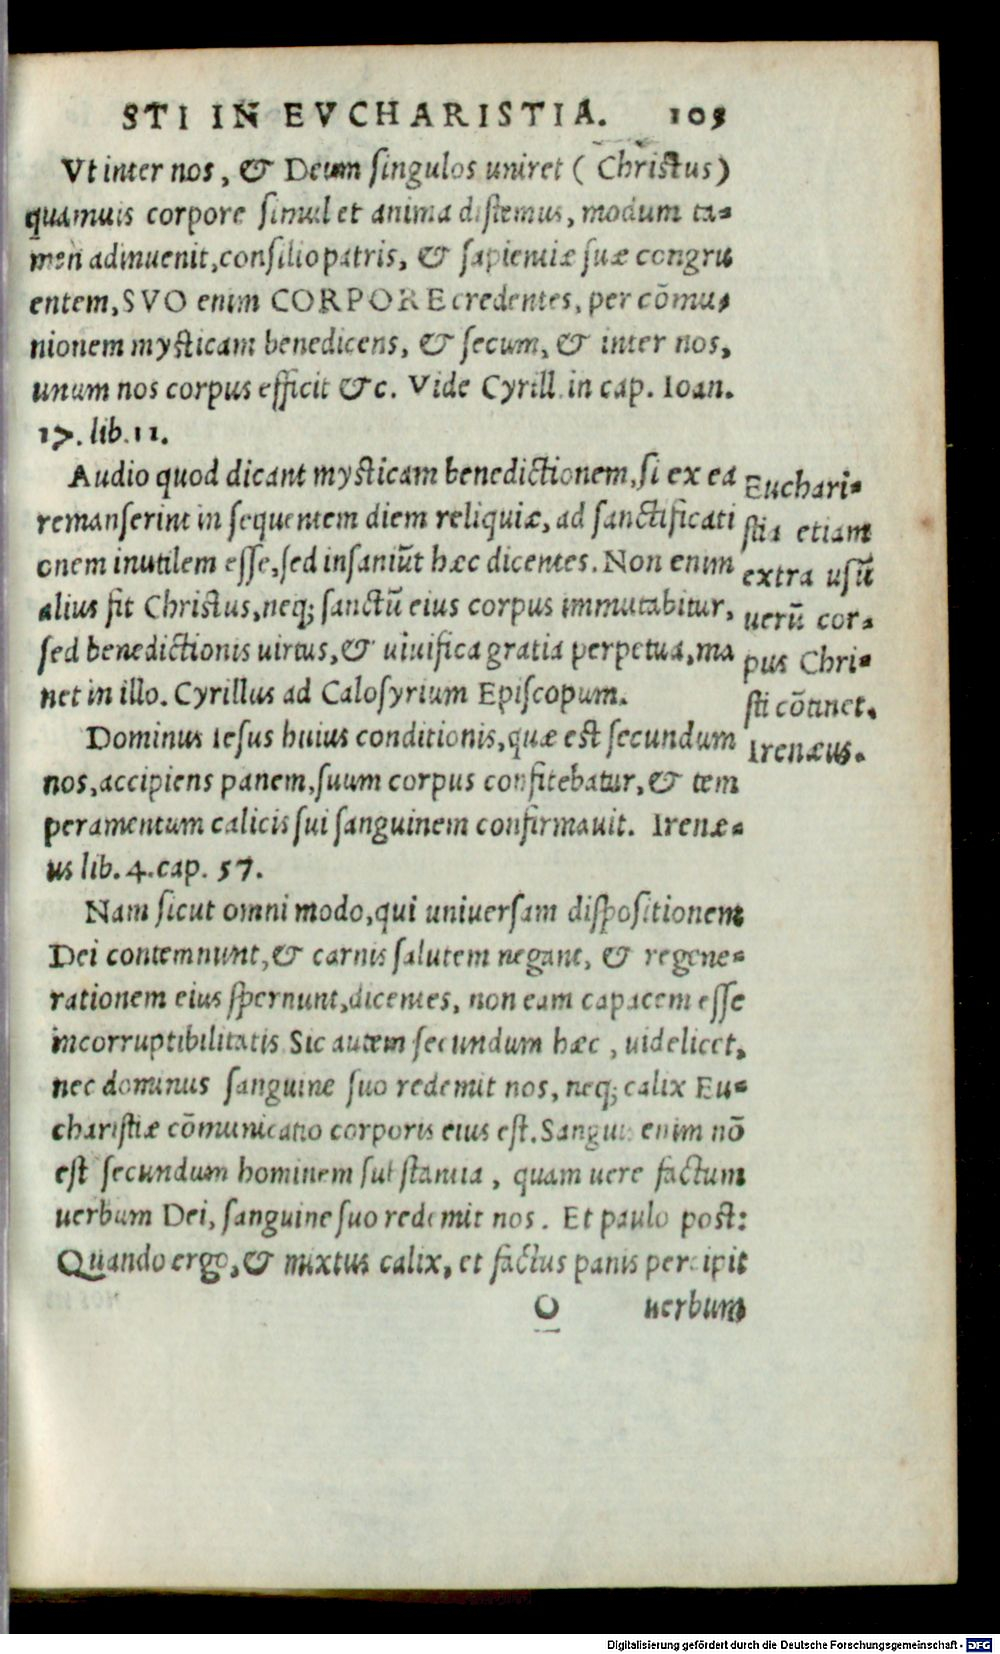 STI IN EVCHARISTIA. 105
Vt inter nos, & Deum singulos uniret (Christus)
quamuis corpore simul et anima distemus, modum ta-
men adinuenit, consilio patris, & sapientiæ suæ congru
entem, SVO enim CORPORE credentes, per cõmu-
nionem mysticam benedicens, & secum, & inter nos,
unum nos corpus efficit &c. Vide Cyrill. in cap. Ioan.
17. lib. 11.
Audio quod dicant mysticam benedictionem, si ex ea
remanserint in sequentem diem reliquiæ, ad sanctificati
onem inutilem esse, sed insaniũt hæc dicentes. Non enim
alius fit Christus, neq; sanctũ eius corpus immutabitur,
sed benedictionis uirtus, & uiuifica gratia perpetua, ma
net in illo. Cyrillus ad Calosyrium Episcopum.
Euchari-
stia etiam
extra usũ
uerũ cor-
pus Chri-
sti cõtinet.
Irenæus.
Dominus Iesus huius conditionis, quæ est secundum
nos, accipiens panem, suum corpus confitebatur, & tem
peramentum calicis sui sanguinem confirmauit. Irenæ-
us lib. 4. cap. 57.
Nam sicut omni modo, qui uniuersam dispositionem
Dei contemnunt, & carnis salutem negant, & regene-
rationem eius spernunt, dicentes, non eam capacem esse
incorruptibilitatis Sic autem secundum hæc, uidelicet,
nec dominus sanguine suo redemit nos, neq; calix Eu-
charistiæ cõmunicatio corporis eius est. Sanguis enim nõ
est secundum hominem substantia, quam uere factum
uerbum Dei, sanguine suo redemit nos. Et paulo post:
Quando ergo, & mixtus calix, et factus panis percipit
O uerbum
Digitalisierung gefördert durch die Deutsche Forschungsgemeinschaft - DFG